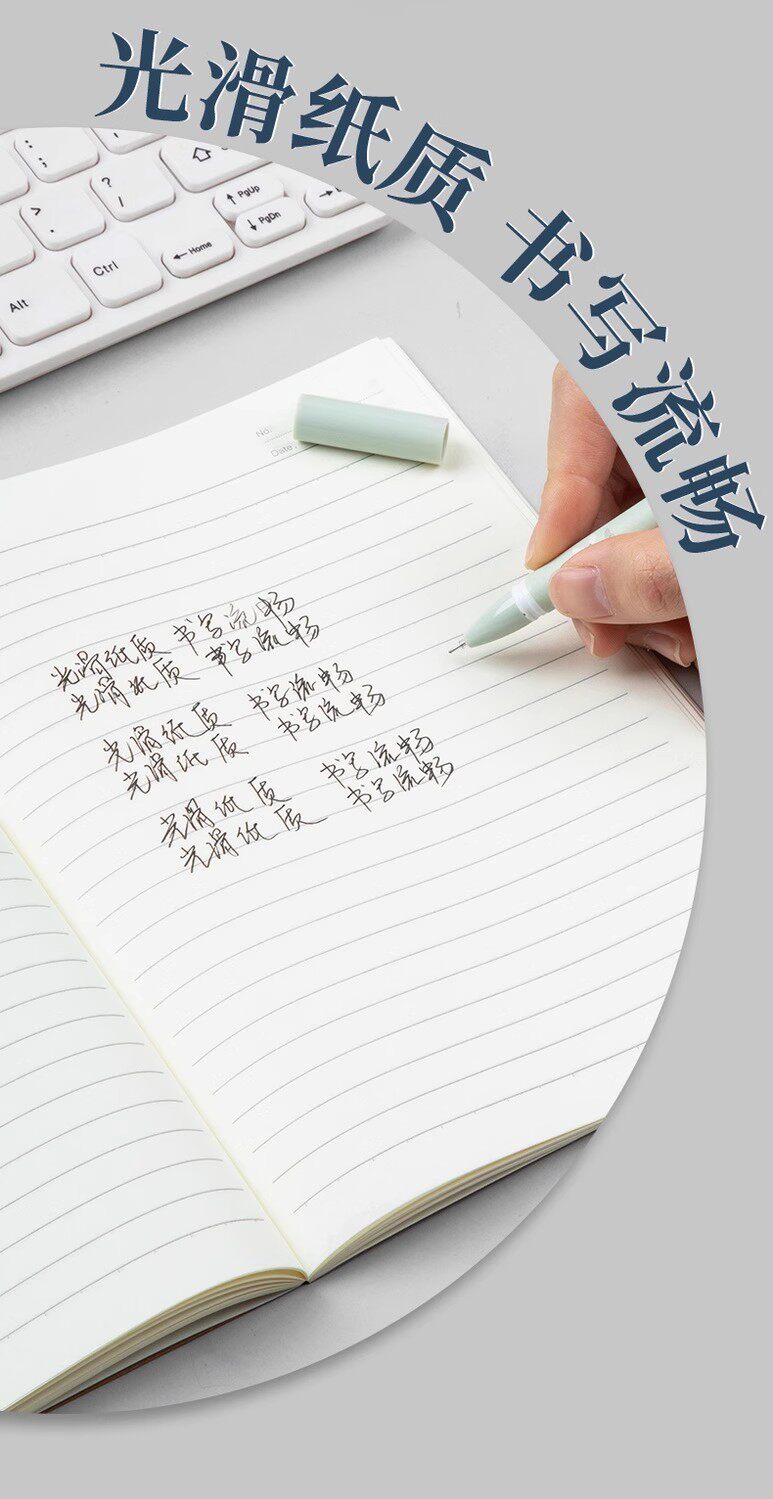 光滑纸质 书写流畅
:
;
>
.
?
/
⇧
↑ PgUp
↓ PgDn
← Home
Ctrl
Alt
→
No.
Date.
光滑纸质 书写流畅
光滑纸质 书写流畅
光滑纸质 书写流畅
光滑纸质 书写流畅
光滑纸质 书写流畅
光滑纸质 书写流畅